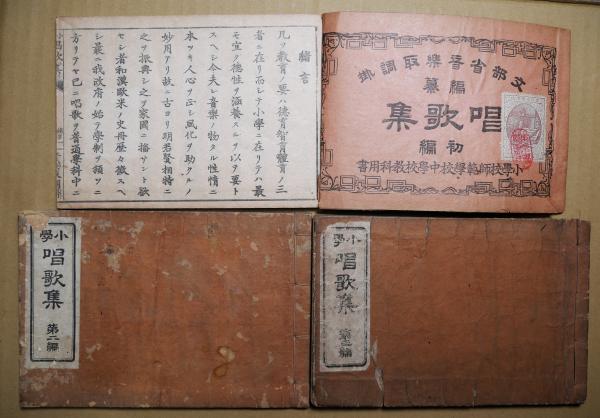 緒言
凡ソ教育ノ要ハ德育智育體育ノ三
者ニ在リ而シテ小學ニ在リテハ最
モ宜ク德性ヲ涵養スルヲ以テ要ト
スヘシ今夫レ音樂ノ物タル性情ニ
本ツキ人心ヲ正シ風化ヲ助クルノ
妙用アリ故ニ古ヨリ明君賢相特ニ
之ヲ振興シ之ヲ家國ニ播サント欲
セシ者和漢歐米ノ史冊歷々徵スヘ
シ曩ニ我政府ノ始テ學制ヲ頒ツニ
方リテヤ已ニ唱歌ヲ普通學科中ニ
文部省音樂取調掛
編纂
唱歌集
初編
小學校師範學校中學校教科用書
小學
唱歌集
第二編
小學
唱歌集
第三編